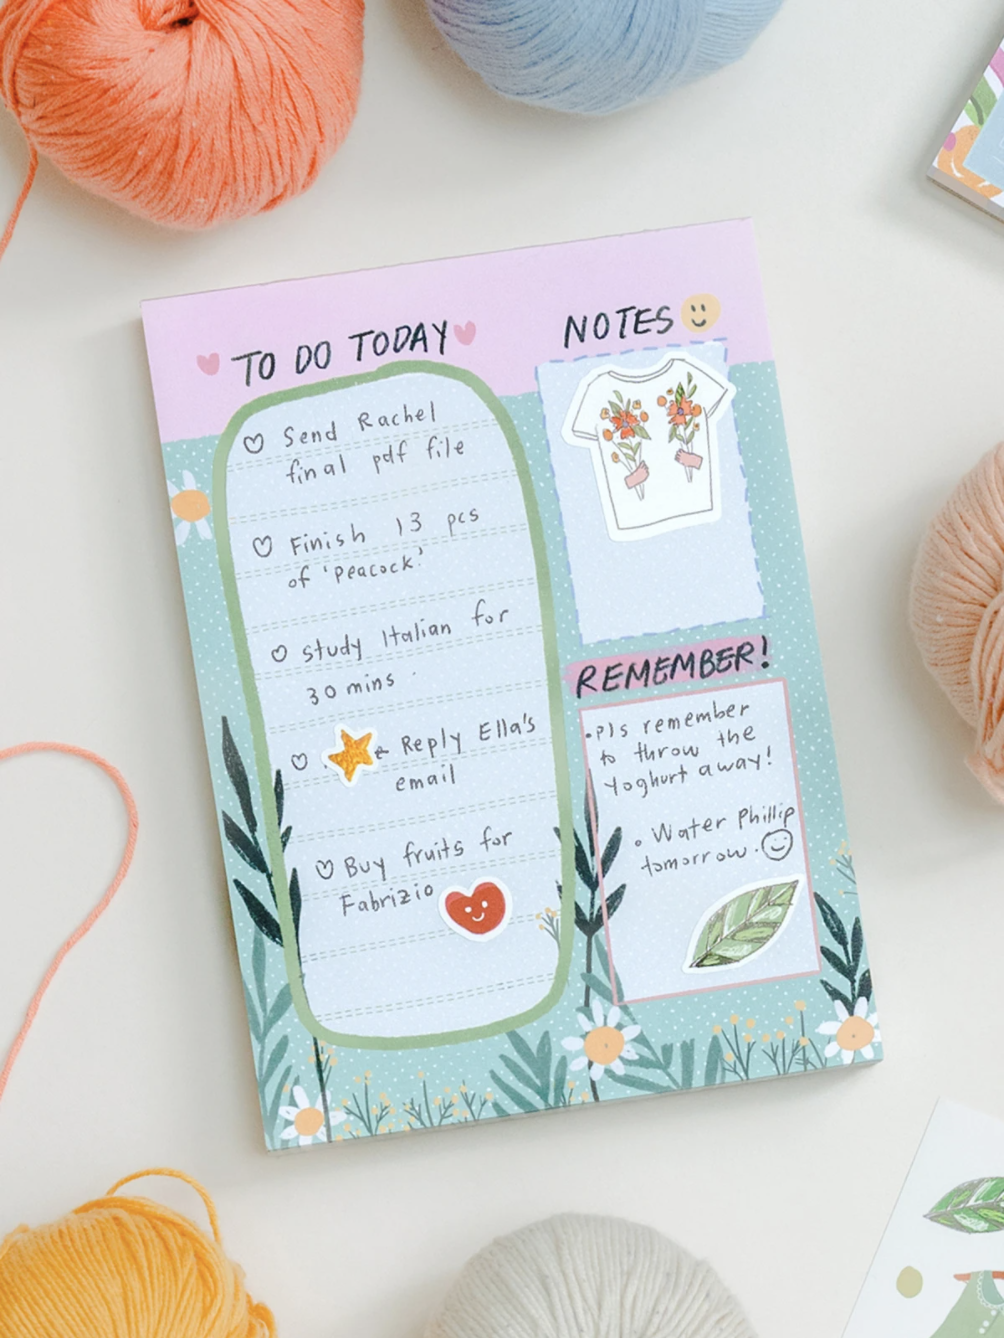 TO DO TODAY
Send Rachel
final pdf file
Finish 13 pcs
of 'Peacock'
Study Italian for
30 mins
Reply Ella's
email
Buy fruits for
Fabrizio
NOTES
REMEMBER!
• Pls remember
to throw the
Yoghurt away!
• Water Phillip
tomorrow.